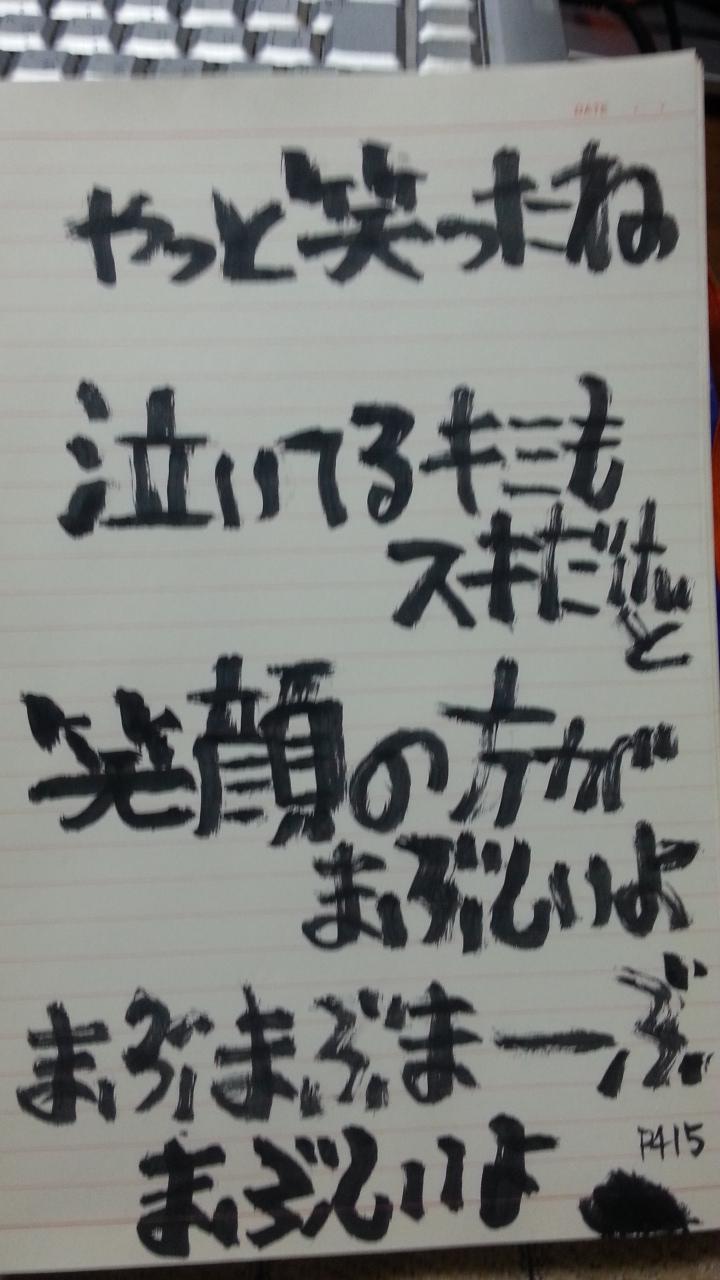 DATE
やっと笑ったね
泣いてるキミも
スキだけど
笑顔の方が
まぶしいよ
まぶまぶまーぶ
まぶしいよ
P415